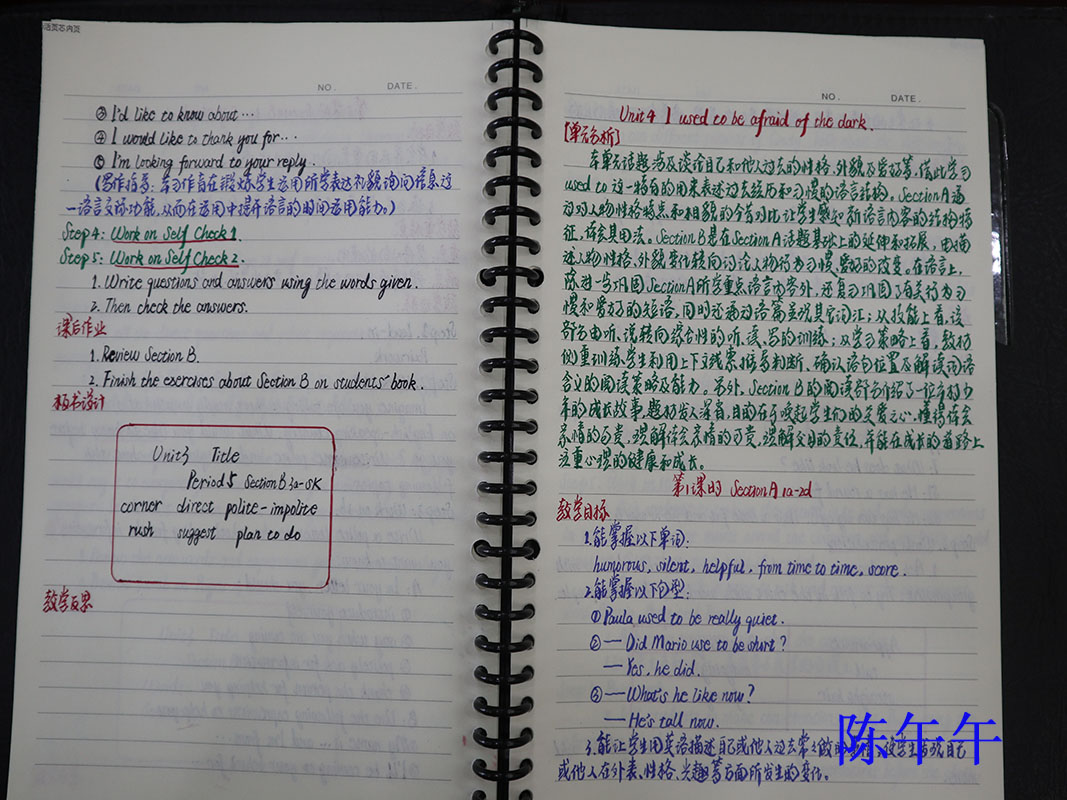 活页芯内页
NO.
DATE.
③ I'd like to know about…
④ I would like to thank you for…
⑤ I'm looking forward to your reply.
(写作指导:本习作旨在锻炼学生运用所学表达礼貌询问信息这
一语言交际功能,从而在运用中提升语言的时间运用能力。)
Step 4: Work on Self Check 1.
Step 5: Work on Self Check 2.
1. Write questions and answers using the words given.
2. Then check the answers.
课后作业
1. Review Section B.
2. Finish the exercises about Section B on students' book.
板书设计
Unit3 Title
Period 5 Section B 3a-SK
corner direct polite-impolite
rush suggest plan to do
教学反思
NO.
DATE.
Unit 4 I used to be afraid of the dark.
[单元分析]
本单元话题涉及谈论自己和他人过去的性格、外貌及爱好等,借此学习
used to 这一特有的用来表述过去经历和习惯的语言结构。Section A 通
过对人物性格特点和相貌的今昔对比,让学生感知新语言内容的结构特
征,体会其用法。Section B是在Section A话题基础上的延伸和拓展,由描
述人物性格、外貌变化转向讨论人物行为习惯、爱好的改变。在语言上,
除进一步巩固Section A所学重点语言内容外,还复习巩固了有关行为习
慣和爱好的短语,同时还通过语篇呈现其它词汇;从技能上看,该
部分由听、说转向综合性的听、读、写的训练;从学习策略上看,教材
侧重训练学生利用上下文线索推导判断、确认语句位置及解读词语
含义的阅读策略及能力。另外,Section B的阅读部分介绍了一位乡村少
年的成长故事,题材发人深省,目的在于唤起学生们的关爱之心,懂得体会
亲情的可贵,理解体会亲情的可贵,理解父母的责任,并能在成长的道路上
注重心理的健康和成长。
第1课时 Section A 1a-2d
教学目标
1.能掌握以下单词:
humorous, silent, helpful, from time to time, score.
2.能掌握以下句型:
① Paula used to be really quiet.
② — Did Mario use to be short?
— Yes, he did.
③ — What's he like now?
— He's tall now.
3.能让学生用英语描述自己或他人过去常常做的 使学生发现自己
或他人在外表、性格、兴趣等方面所发生的变化。
陈午午